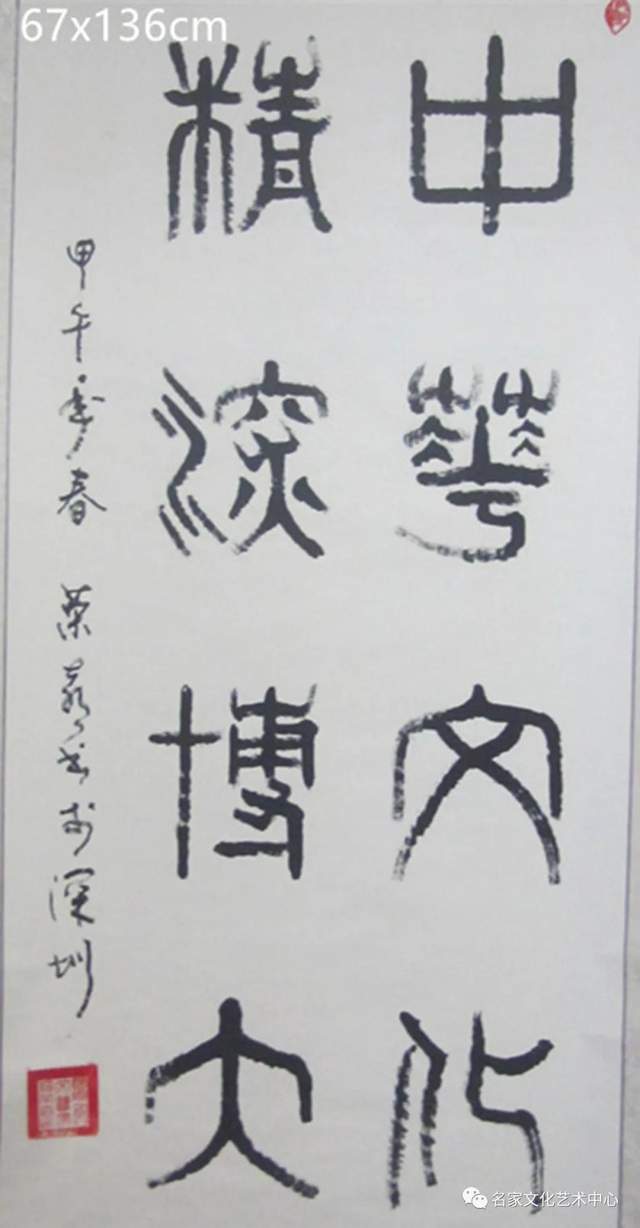 67x136cm
中華文化
精深博大
甲午年春
书于深圳
名家文化艺术中心